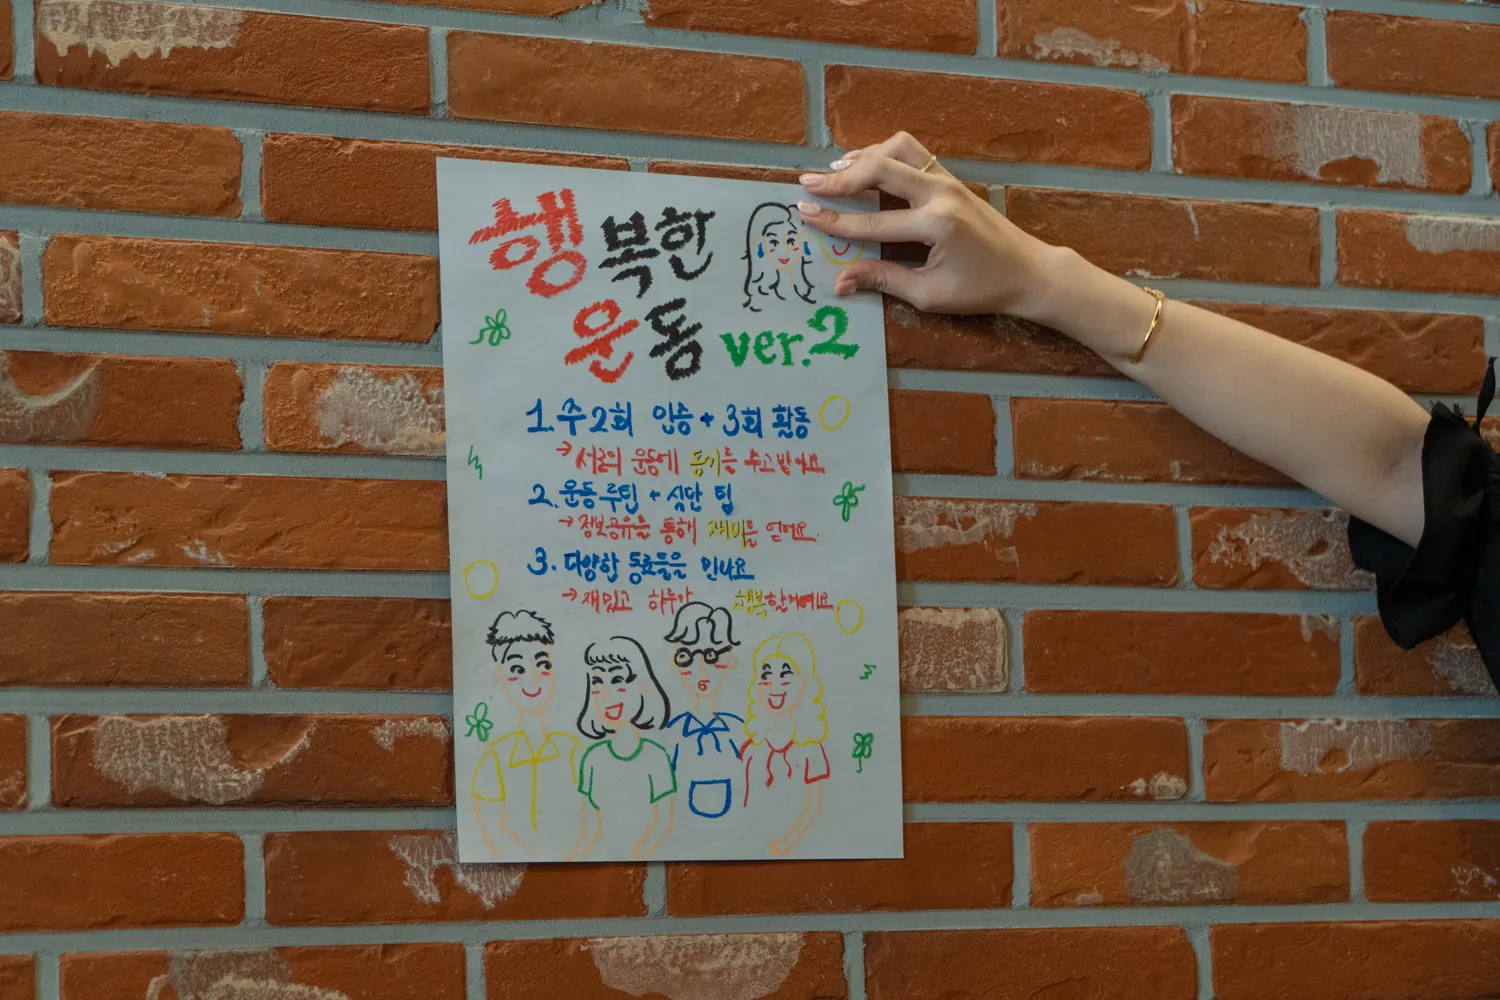 행복한
운동 ver.2
1. 주 2회 인증 + 3회 활동
→ 서로의 운동에 동기를 주고받아요
2. 운동루틴 + 식단 팁
→ 정보공유를 통해 재미를 얻어요.
3. 다양한 동료들을 만나요
→ 재밌고 하루가 행복할거예요